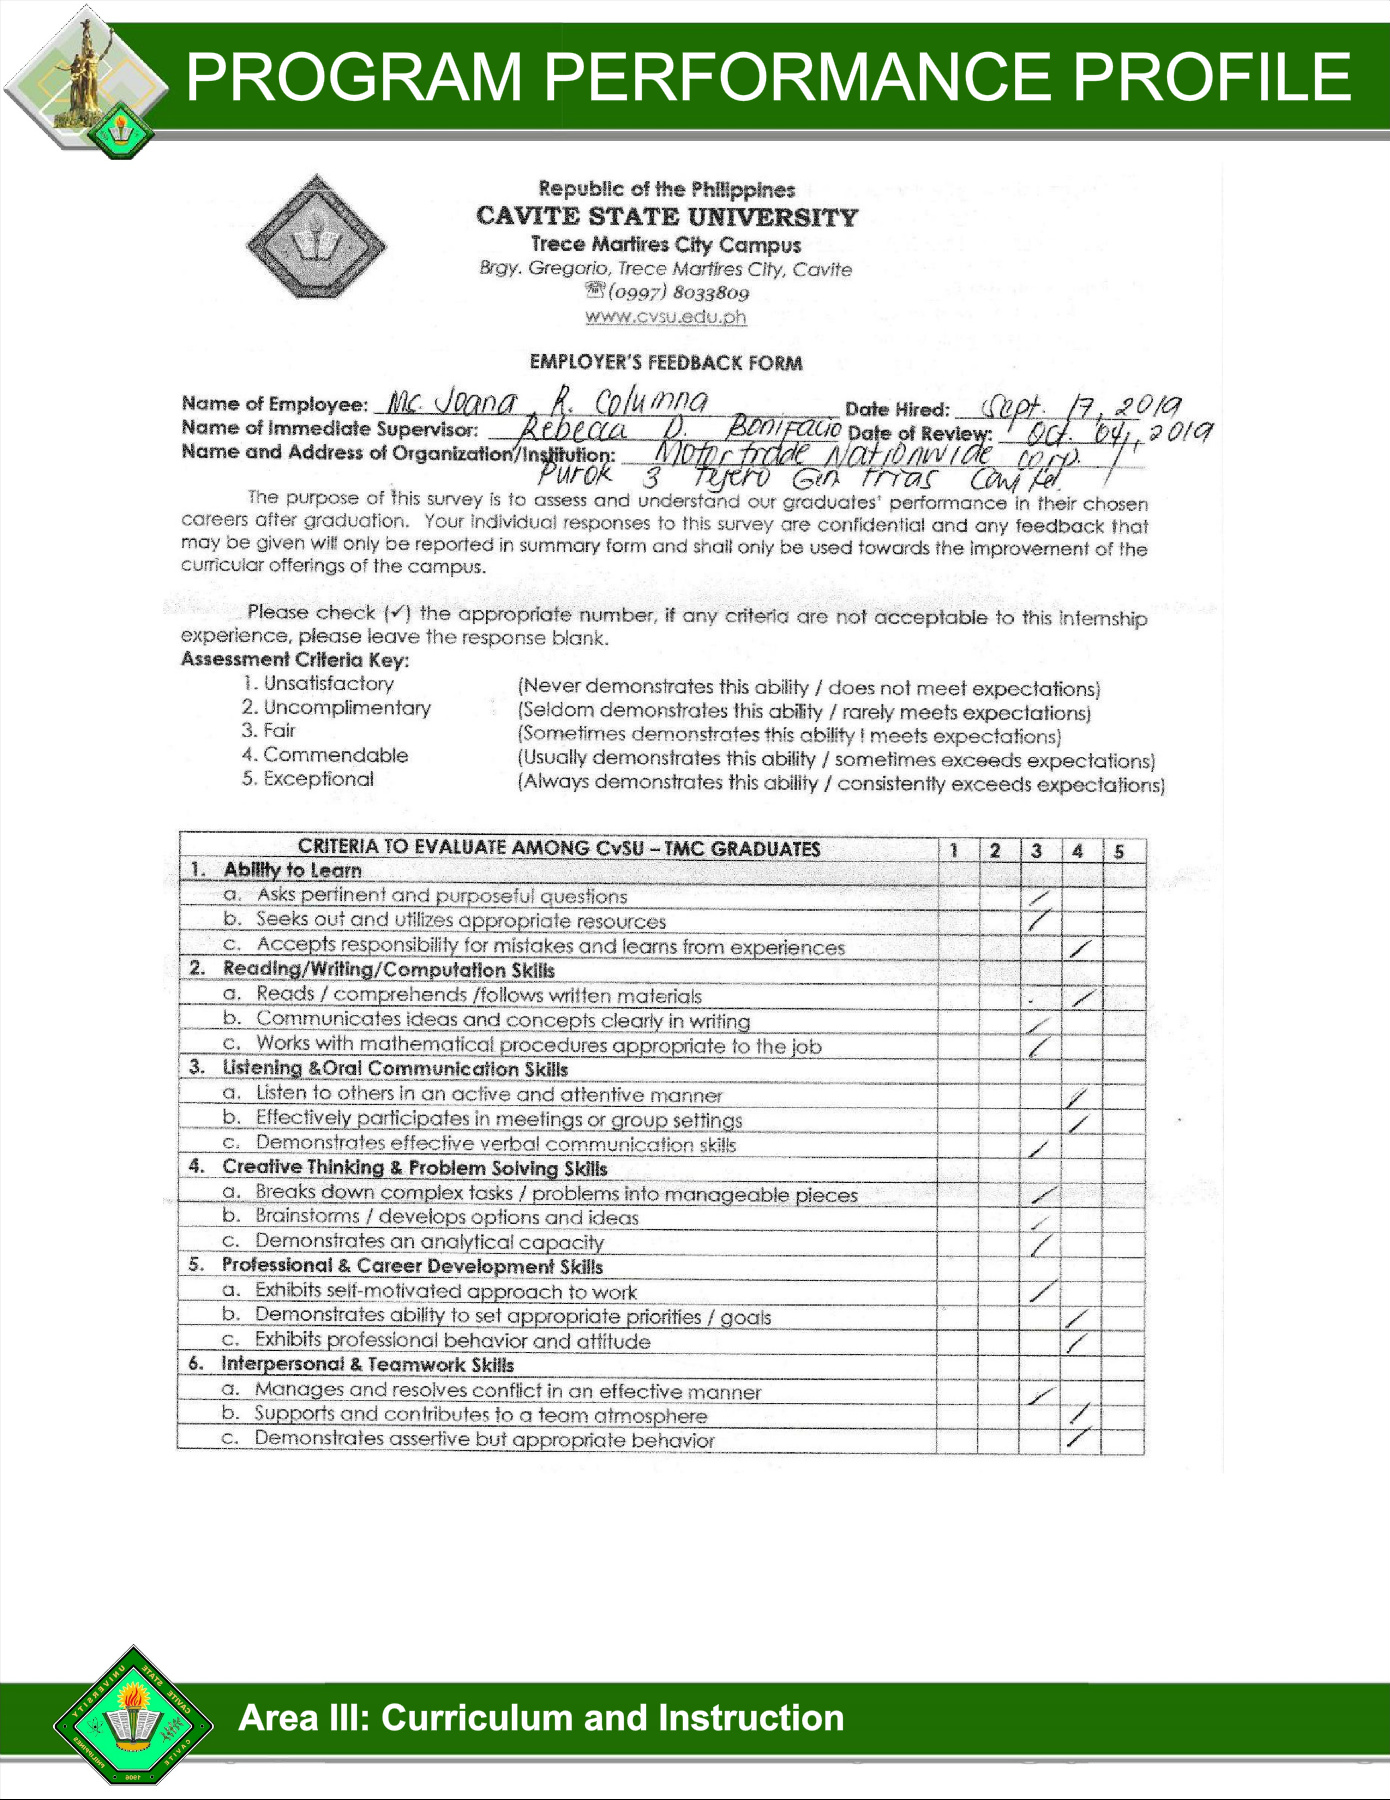 PROGRAM PERFORMANCE PROFILE
Republic of the Philippines
CAVITE STATE UNIVERSITY
Trece Martires City Campus
Brgy. Gregorio, Trece Martires City, Cavite
☏(0997) 8033809
www.cvsu.edu.ph
EMPLOYER'S FEEDBACK FORM
Name of Employee: Mc. Joana R. Columna Date Hired: Sept. 17, 2019
Name of Immediate Supervisor: Rebecca D. Bonifacio Date of Review: Oct. 04, 2019
Name and Address of Organization/Institution: Motortrade Nationwide Corp.
Purok 3 Tejero Gen Trias Cavite.
The purpose of this survey is to assess and understand our graduates' performance in their chosen
careers after graduation. Your individual responses to this survey are confidential and any feedback that
may be given will only be reported in summary form and shall only be used towards the improvement of the
curricular offerings of the campus.
Please check (✓) the appropriate number, if any criteria are not acceptable to this internship
experience, please leave the response blank.
Assessment Criteria Key:
1. Unsatisfactory (Never demonstrates this ability / does not meet expectations)
2. Uncomplimentary (Seldom demonstrates this ability / rarely meets expectations)
3. Fair (Sometimes demonstrates this ability ! meets expectations)
4. Commendable (Usually demonstrates this ability / sometimes exceeds expectations)
5. Exceptional (Always demonstrates this ability / consistently exceeds expectations)
CRITERIA TO EVALUATE AMONG CvSU – TMC GRADUATES 1 2 3 4 5
1. Ability to Learn
a. Asks pertinent and purposeful questions /
b. Seeks out and utilizes appropriate resources /
c. Accepts responsibility for mistakes and learns from experiences /
2. Reading/Writing/Computation Skills
a. Reads / comprehends /follows written materials /
b. Communicates ideas and concepts clearly in writing /
c. Works with mathematical procedures appropriate to the job /
3. Listening &Oral Communication Skills
a. Listen to others in an active and attentive manner /
b. Effectively participates in meetings or group settings /
c. Demonstrates effective verbal communication skills /
4. Creative Thinking & Problem Solving Skills
a. Breaks down complex tasks / problems into manageable pieces /
b. Brainstorms / develops options and ideas /
c. Demonstrates an analytical capacity /
5. Professional & Career Development Skills
a. Exhibits self-motivated approach to work /
b. Demonstrates ability to set appropriate priorities / goals /
c. Exhibits professional behavior and attitude /
6. Interpersonal & Teamwork Skills
a. Manages and resolves conflict in an effective manner /
b. Supports and contributes to a team atmosphere /
c. Demonstrates assertive but appropriate behavior /
Area III: Curriculum and Instruction